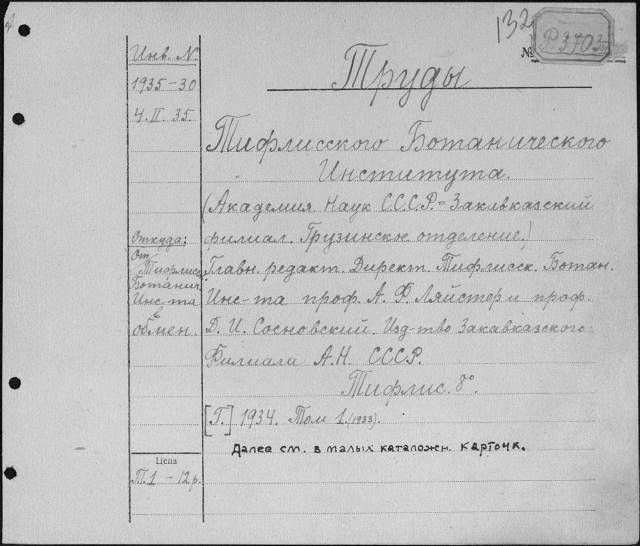 132
№ P 3703
Инв. N
1935-30
4.II.35.
Откуда:
От
Тифлисс.
Ботанич.
Инс-та
в
обмен.
Цена
Т.1 - 12 р.
Труды
Тифлисского Ботанического
Института.
(Академия Наук С.С.С.Р. = Закавказский
филиал. Грузинское отделение.)
Главн. редакт. Директ. Тифлисск. Ботан.
Инс-та проф. А. Ф. Ляйстер и проф.
Д. И. Сосновский. Изд-тво Закавказского
Филиала А.Н. СССР.
Тифлис. 8°.
[Г.] 1934. Том 1. (1933).
Далее см. в малых каталожн. карточк.